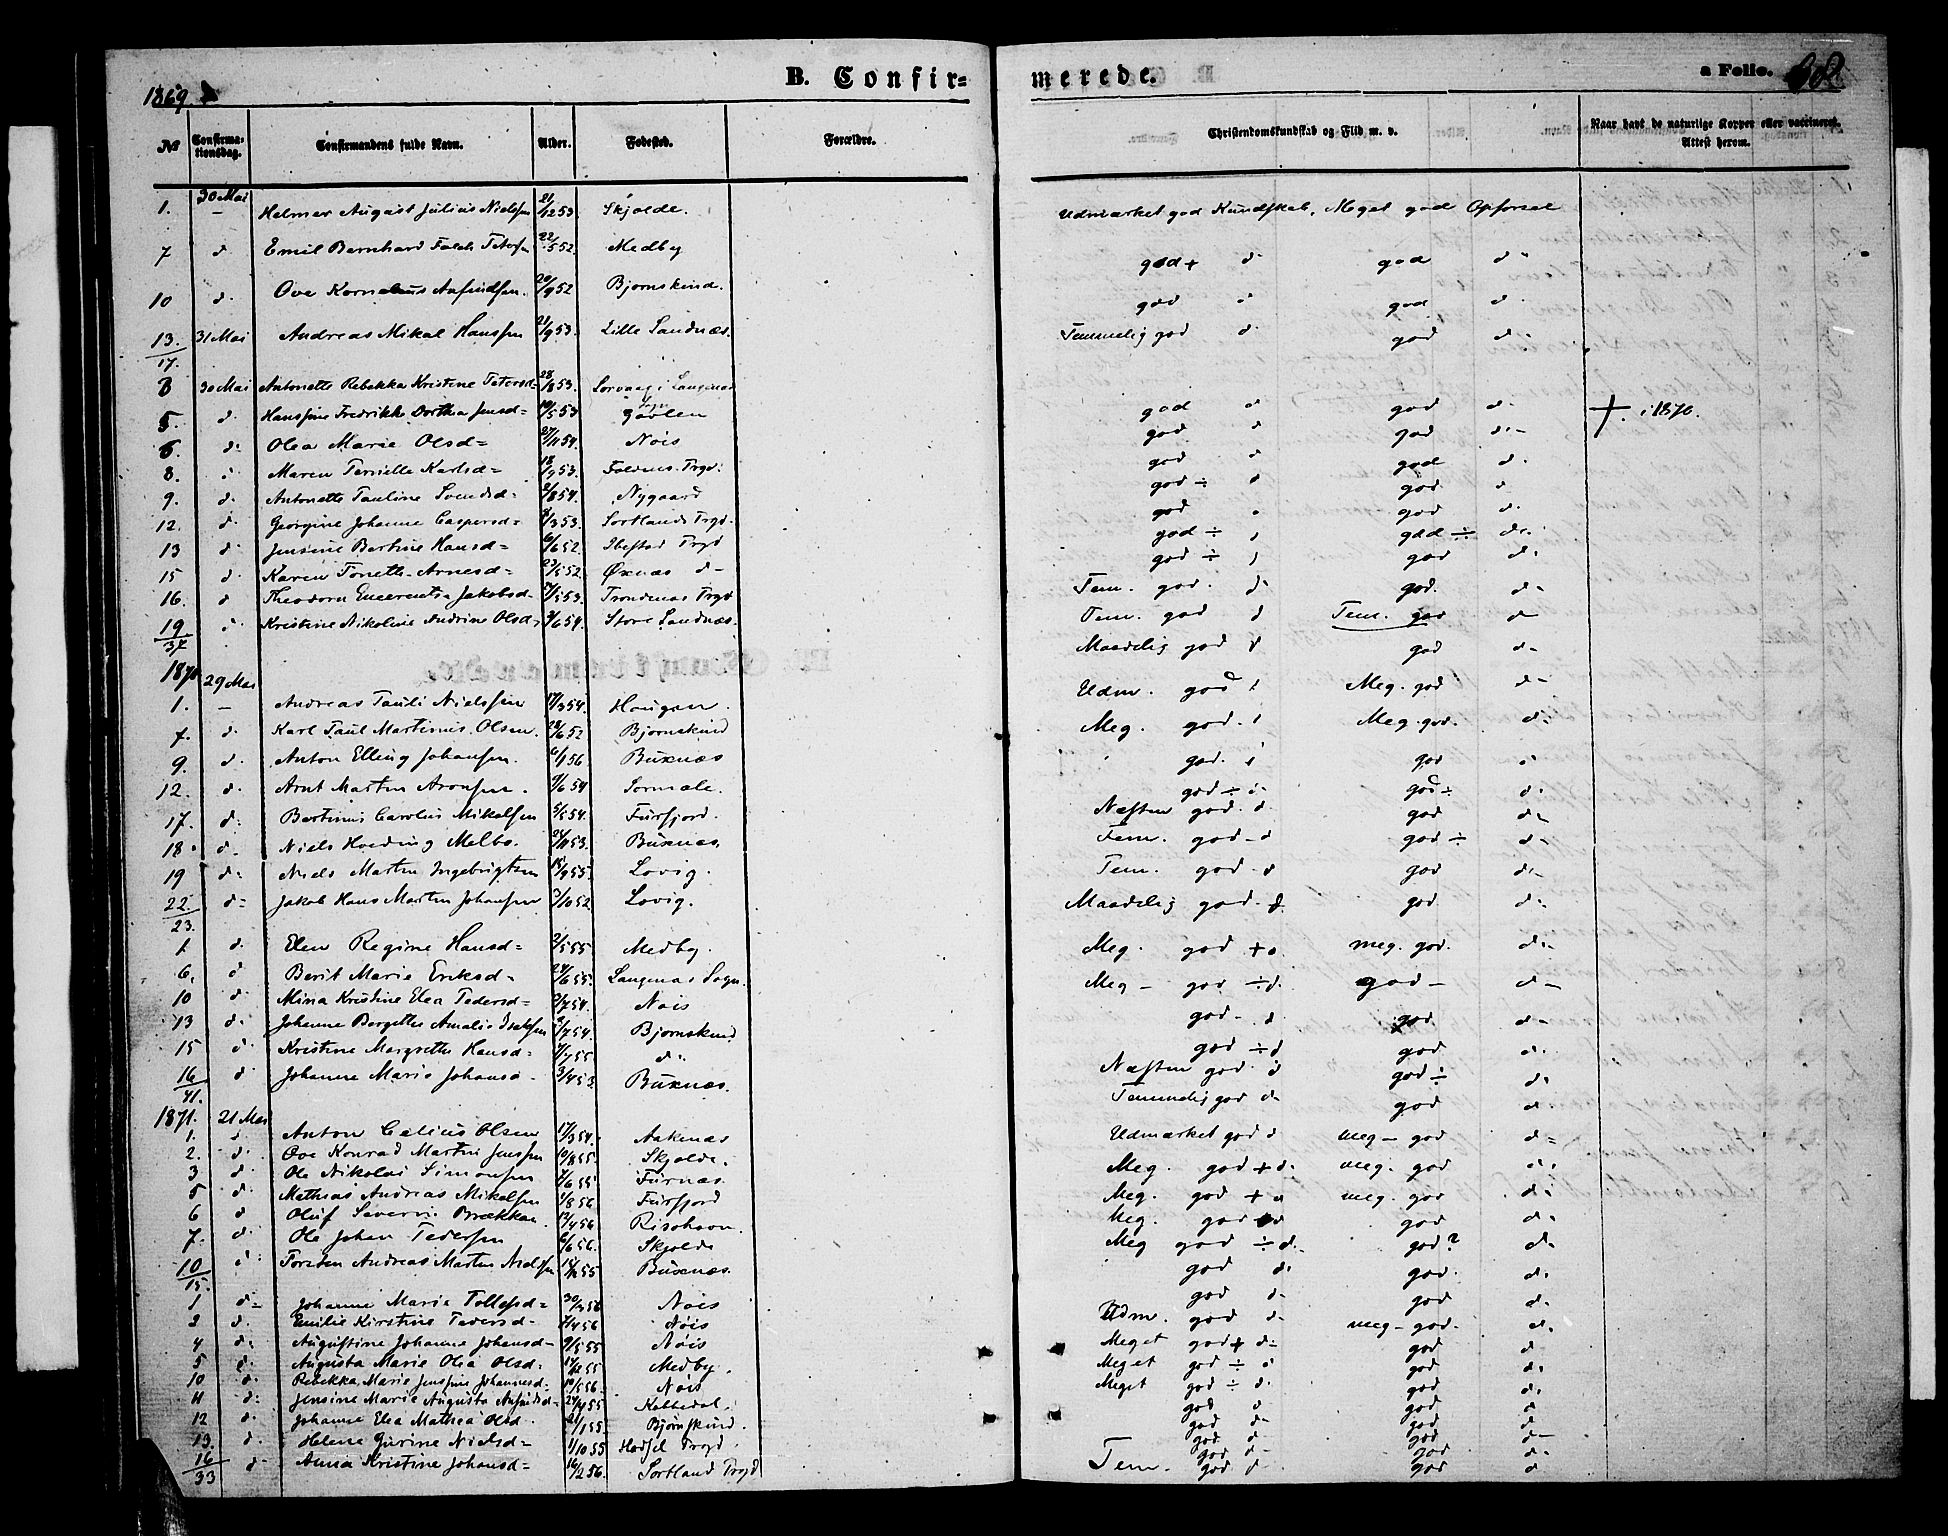 1869
B. Confir=
merede.
a Folio.
No
Confirma-
tionsdag.
Confirmandens fulde Navn.
Alder.
Fødested.
Forældre.
Christendomskundskab og Flid m. v.
Naar havt de naturlige Kopper eller vaccineret.
Attest herom.
1. 30 Mai Helmer August Julius Nielsen 21/12 53 Skjolde. Udmærket god Kundskab, Meget god Opførsel
7 d Emil Bernhard Falch Petersen 22/5 52. Medby god + d. god d.
10 d. Ove Kornelius Anfindsen. 20/9 52 Bjørnskind. god d god d.
13. 31 Mai Andreas Mikal Hanssen 21/9 53. Lille Sandnæs. Temmelig god d. god d.
17.
30 Mai Antonette Rebekka Kristine Petersd= 28/8 53. Sørvaag i Langenæs god d god d. + i 1870.
5. d. Hansine Fredrikke Dorthea Jensd= 10/5 53 god. d god d.-
6. d. Olea Marie Olsd= 27/11 54. Nøis god d god d.
8. Maren Pernille Karlsd= 18/9 53. god ÷ d god. d
9. d. Antonette Pauline Svendsd= /8 54. Nygaard god god d.
12. d. Georgine Johanne Caspersd= /3 53. Sortlands Prgd. god ÷ god ÷ d.
13 d. Jensine Bertine Hansd= 6/6 52. Ibestad Prgd god ÷ god d.
15 d. Karen Tonette Arnesd= 23/5 52. Øxnæs d- Tem. god. d. god. d-
16. d Theodora Jakobsd. /5 53. Trondenæs Prgd Tem. god d Tem. god d
19 Kristine Nikoline Andrine Olsd. /6 54. Store Sandnæs. Maadelig god d god d-
37
1870
29 Mai
1. - Andreas Pauli Nielssen 17/3 54. Haugen. Udm. god Meg. god d-
7. d. Karl Paul Martinus Olsen. 28/6 52 Bjørnskind Meg. god. Meg. god. d.
9. d. Anton Elling Johansen. 6/1 56 Buxnæs god. god d
12. d. Arnt Martin Aronsen. 9/6 54 Sormæle. god ÷ d. god ÷ d.
17. d. Bertinius Carolus Mikalsen 5/5 54. Fursfjord. Næsten god. d god d.
18. d. Niels Melbo. 24/11 53. Buxnæs. Tem. god - d god ÷ d.
19 d. Niels Martin Ingebrigtsen 18/9 55. Lovig. Tem. god. d god d.-
22. d= Jakob Hans Martin Johansen 3/10 52. Lovig. Maadelig god. d. god d.
23.
1. d. Elen Regine Hansd= 2/5 55 Medby. Meg. god + d. meg. god. d.-
6. d Berit Marie Eriksd- 24/6 55. Langenæs Sogn. Meg - god ÷ d. god - d-
10 d. Mina Kristine Elea Pedersd= 2/7 54. Nøis god- d god d-
13 d. Johanne Bergette Amalie Isaksen /7 54. Bjørnskind god ÷ d god d.
15 d. Kristine Margrethe Hansd= /7 55 d. Næsten god. d god ÷ d.
16 d. Johanne Marie Johansd- 3/4 53. Buxnæs. Temmelig god d. god d
41.
1871. 21 Mai
1. d Anton Celius Olsen 17/3 54. Aakenæs Udmærket god d meg - god d=
2. d. Ove Konrad Martin Jenssen 10/8 55. Skjolde. Meg. god + d. meg. god d.
3 d. Ole Nikolai Simonsen /6 55 Furnæs. Meg. god + d meg. god d.
5 d. Mathias Andreas Mikalsen 1/8 56 Fursfjord Meg. god d god d.
6 d Oluf Severin Brækkan 12/4 56 Risøhavn. Meg god ÷ d. god? d.
7. d. Ole Johan Pedersen 6/6 56. Skjolde god d. god. d.
10 d. Torsten Andreas Martin Nielsen 55 Buxnæs. god d. god d.
15.
1 d= Johanne Marie Tollefsd= 30/ 56 Nøis Udm. god d meg - god. d.
2 d. Emilie Kirstine Pedersd- /4 56 Nøis Meget god + d. god d
4 d. Augustine Johanne Johansd= 9/5 55 Nøis Meget god ÷ d god d.
5 d. Augusta Marie Olea Olsd. 55 Medby. Meget god ÷ d. god d.
10 d. Rebekka Marie Jensine Johannesd. 10/5 56. Nøis god d god d.
11 d. Jensine Marie Augusta Anfindsd= 55 god d. god d.
12 d. Johanne Elea Mathea Olsd. 21/1 55 Bjørnskind. god d god d-
13. d. Helene Gurine Nielsd= 1/10 55 Hadsel Prgd. god d- god d.
16 d Anna Kristine Johansd= 16/2 56. Sortland Prgd Tem. god d. god d
33